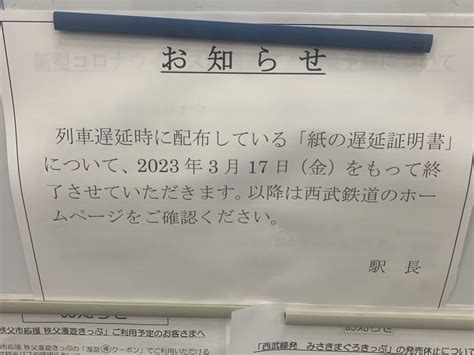 お知らせ
列車遅延時に配布している「紙の遅延証明書」
について、2023年3月17日（金）をもって終
了させていただきます。以降は西武鉄道のホー
ムページをご確認ください。
駅長
お知らせ
秩父市応援 秩父漫遊きっぷ」ご利用予定のお客さまへ
「西武線発 みさきまぐろきっぷ」の発売休止につい